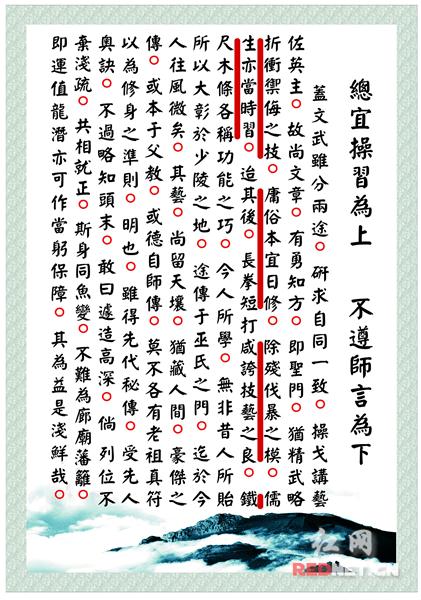 總宜操習為上　不遵師言為下
蓋文武雖分兩途。研求自同一致。操戈講藝
佐英主。故尚文章。有勇知方。即聖門。猶精武略
折衝禦侮之技。庸俗本宜日修。除殘伐暴之模。儒
生亦當時習。迨其後。長拳短打咸誇技藝之良。鐵
尺木條各稱功能之巧。今人所學。無非昔人所貽
所以大彰於少陵之地。途傳于巫氏之門。迄於今
人往風微矣。其藝。尚留天壤。猶藏人間。豪傑之
傳。或本于父教。或德自師傳。莫不各有老祖真符
以為修身之準則。明也。雖得先代秘傳。受先人
奧訣。不過略知頭末。敢曰遽造高深。倘列位不
棄淺疏。共相就正。斯身同魚變。不難為廊廟藩籬。
即運值龍潛亦可作當躬保障。其為益是淺鮮哉。
红网
REDNET.CN